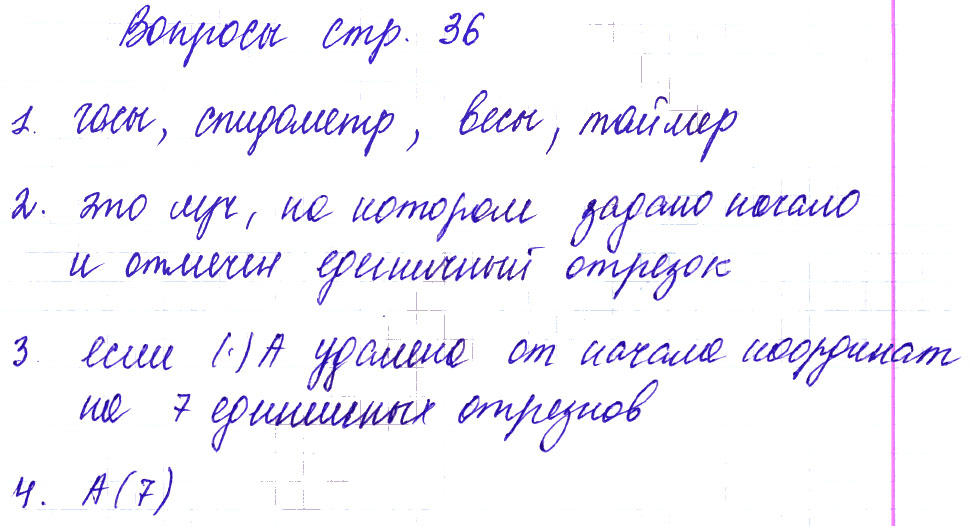 Вопросы стр. 36
1. часы, спидометр, весы, таймер
2. это луч, на котором задано начало
и отмечен единичный отрезок
3 если (·) А удалена от начала координат
на 7 единичных отрезков
4. А(7)